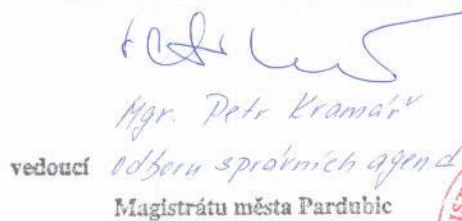 Mgr. Petr Kramář
vedoucí odboru správních agend
Magistrátu města Pardubic